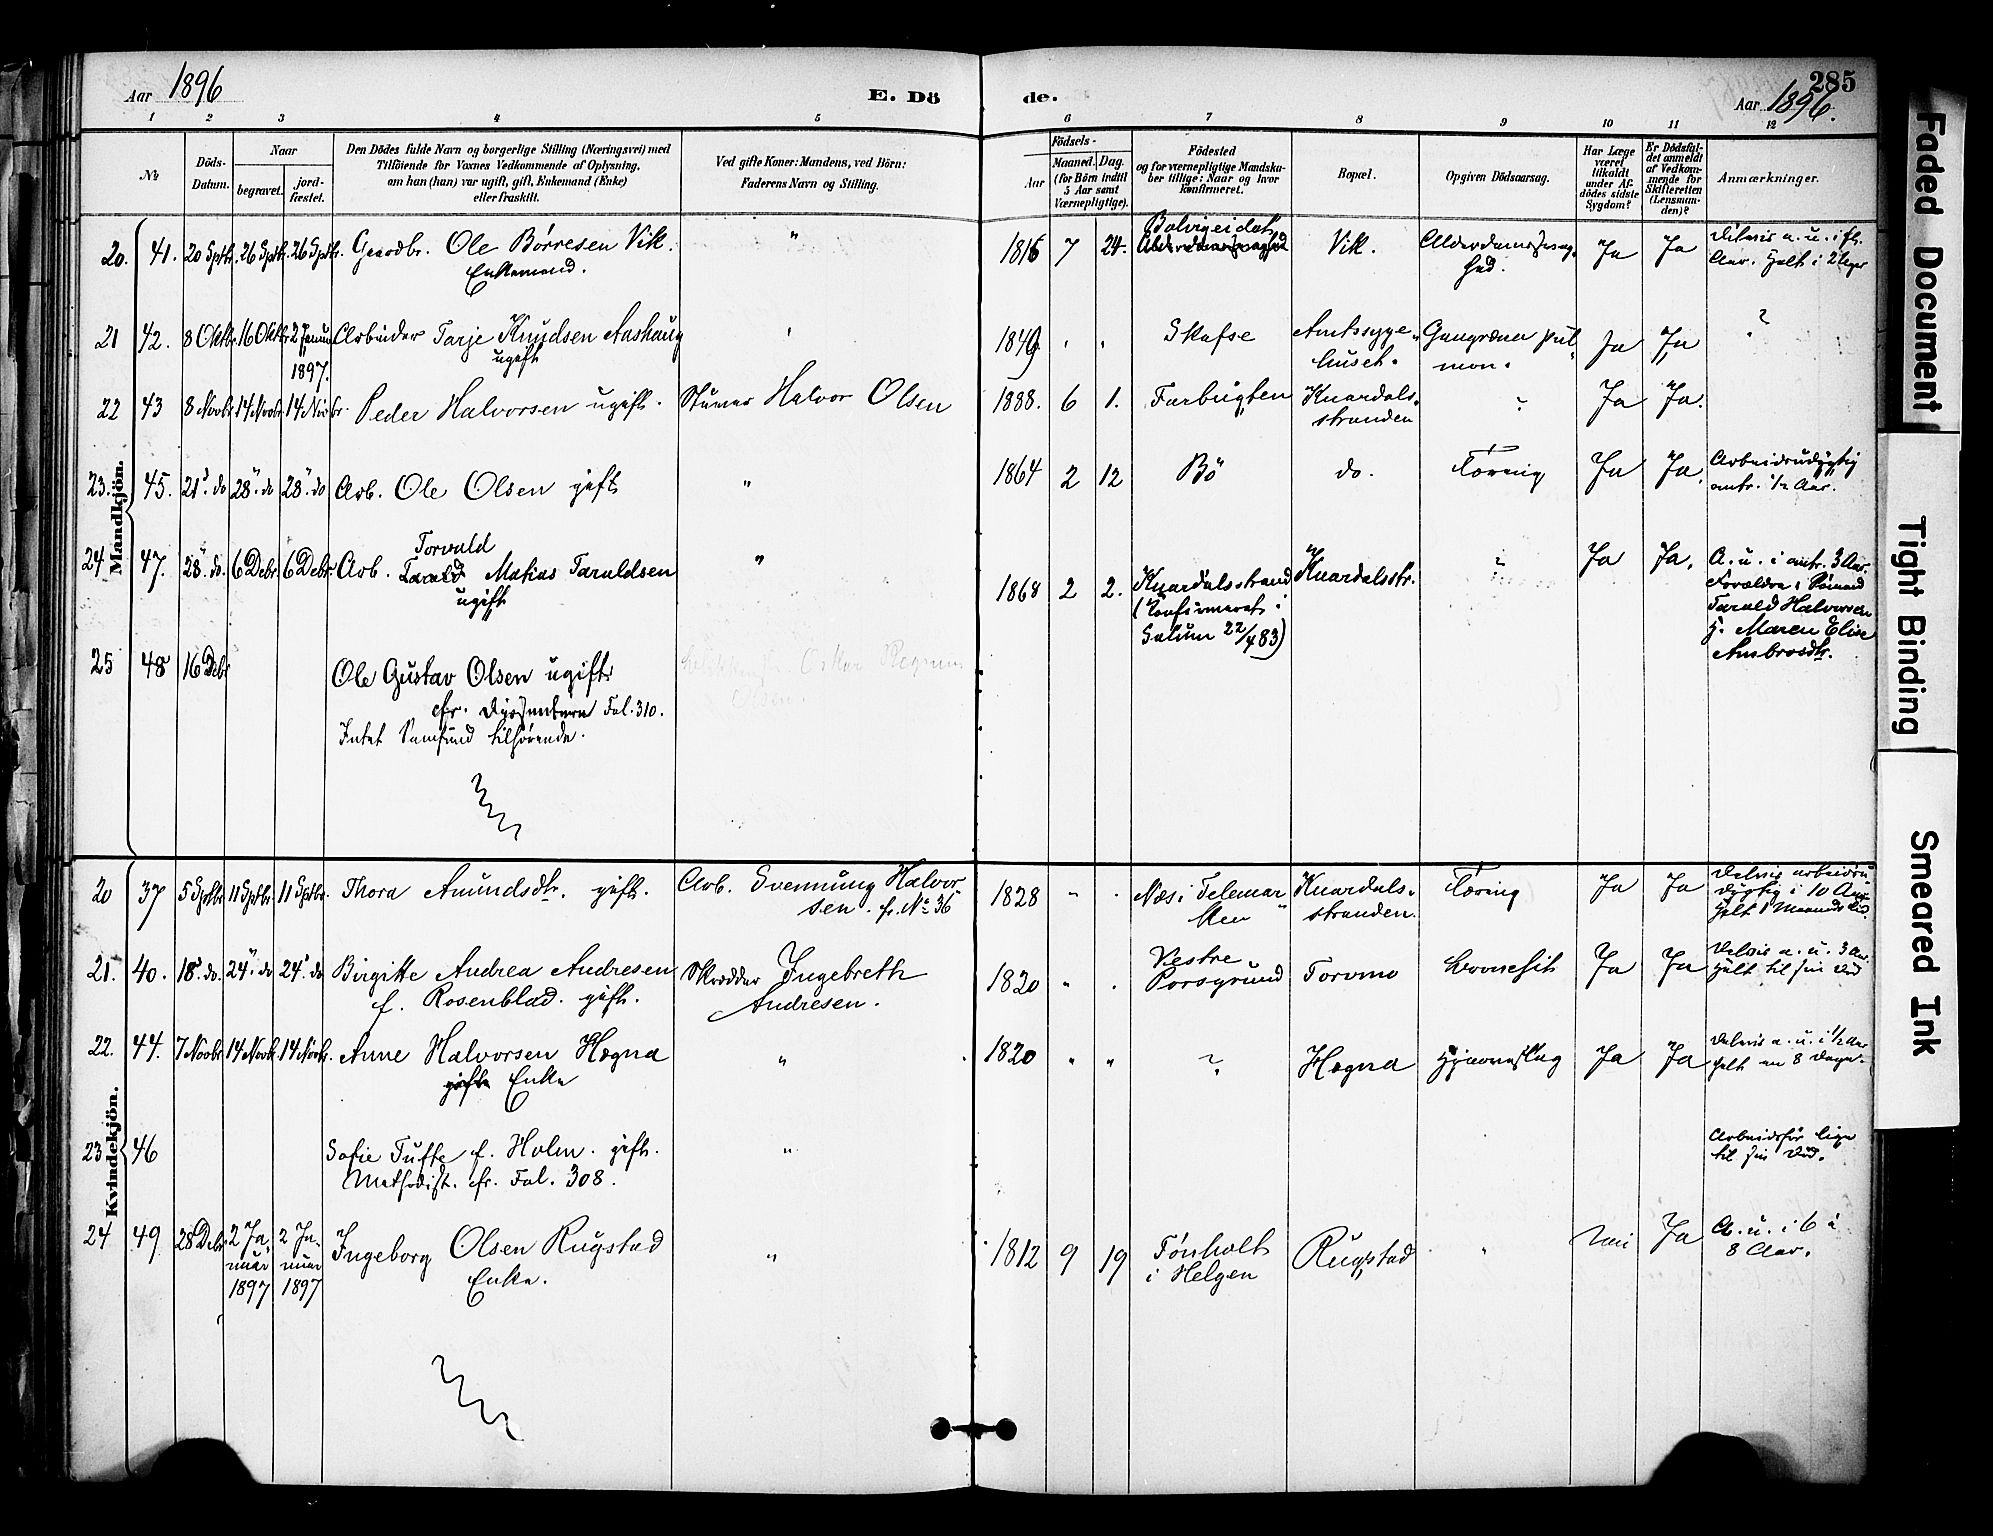 Aar 1896
E. Dö
de.
285
Aar 1896.
1 2 3 4 5 6 7 8 9 10 11 12
No
Döds-
Datum.
Naar
begravet.
jord-
fæstet.
Den Dödes fulde Navn og borgerlige Stilling (Næringsvei) med
Tilföiende for Voxnes Vedkommende af Oplysning,
om han (hun) var ugift, gift, Enkemand (Enke)
eller fraskilt.
Ved gifte Koner: Mandens, ved Börn:
Faderens Navn og Stilling.
Födsels-
Aar
Maaned. Dag.
(for Börn indtil
5 Aar samt
Værnepligtige).
Födested
og for værnepligtige Mandska-
ber tillige: Naar og hvor
Konfirmeret.
Bopæl.
Opgiven Dödsaarsag.
Har Læge
været
tilkaldt
under Af-
dödes sidste
Sygdom?
Er Dödsfal-
det anmeldt
af Vedkom-
mende for
Skifteretten
(Lensman-
den)?
Anmærkninger.
Mandkjön.
20. 41. 20 Sptbr. 26 Sptbr. 26 Sptbr. Gaardbr. Ole Börresen Vik.
Enkemand.
"
1816 7 24. Vik. Alderdomssvag-
hed. Ja Ja Delvis a. u. i fl.
Aar. Helt i 2 Uger
21 42. 8 Oktbr. 16 Oktbr. 2 Januar
1897.
Arbeider Tarje Knudsen Aashaug
ugift
1849. Skafse Amtssyge-
huset. Gangræna pul-
mon. Ja Ja ?
22 43 8 Novbr. 14 Novbr. 14 Novbr. Peder Halvorsen ugift. Stuver Halvor Olsen
1888. 6 1. Farbugten Knardals-
stranden ? Ja Ja.
23. 45. 21 do 28 do 28 do Arb. Ole Olsen gift "
1864 2 12 Bö do. Tæring Ja Ja. Arbeidsudygtig
omtr. 1/2 Aar.
24 47. 28 do. 6 Debr. 6 Debr. Arb. Torvald
Matias Taraldsen
ugift
"
1868 2 2. Knardalsstrand
(Konfirmeret i
Solum 22/4 83)
Knardalsstr. ? Ja Ja. A. u. i omtr. 3 Aar.
Forældre: Sömand
Tarald Halvorsen
H. Maren Elise
Ambrosdtr.
25 48 16 Debr
Ole Gustav Olsen ugift
cfr. Dyssentere Fol. 310.
Intet Samfund tilhörende.
Oskar
Olsen
Kvindekjön.
20 37 5 Sptbr. 11 Sptbr. 11 Sptbr. Thora Amundsdtr. gift. Arb. Svennung Halvor-
sen. fr. No 36
1828 " Næs i Telemar-
ken Knardals-
stranden. Tæring Ja Ja Delvis arbeidsu-
dygtig i 10 Aar
Helt 1 Maaneds Tid.
21. 40. 18 do. 24 do 24 do Birgitte Andrea Andresen
f. Rosenblad. gift.
Skrædder Ingebreth
Andresen.
1820 " Vestre
Porsgrund Torvmo Ja Ja Delvis a. u. 3 Aar.
Helt til sin Död
22. 44. 7 Novbr 14 Novbr. 14 Novbr. Anne Halvorsen Hogna
gift Enke
"
1820 " " ? Hogna Hjerneslag Ja Ja Delvis a. u. i 1/2 Aar
Helt en 8 Dage.
23 46
Sofie Tufte f. Holm. gift.
Methodist. cfr. Fol. 308.
"
Arbeidsför lige
til sin Död.
24 49 28 Debr. 2 Ja-
nuar
1897
2 Ja-
nuar
1897
Ingeborg Olsen Rugstad
Enke.
"
1812 9 19 Tönholt
i Helgen Rugstad " Nei Ja A. u. i 6 à
8 Aar.
Faded Document
Tight Binding
Smeared Ink